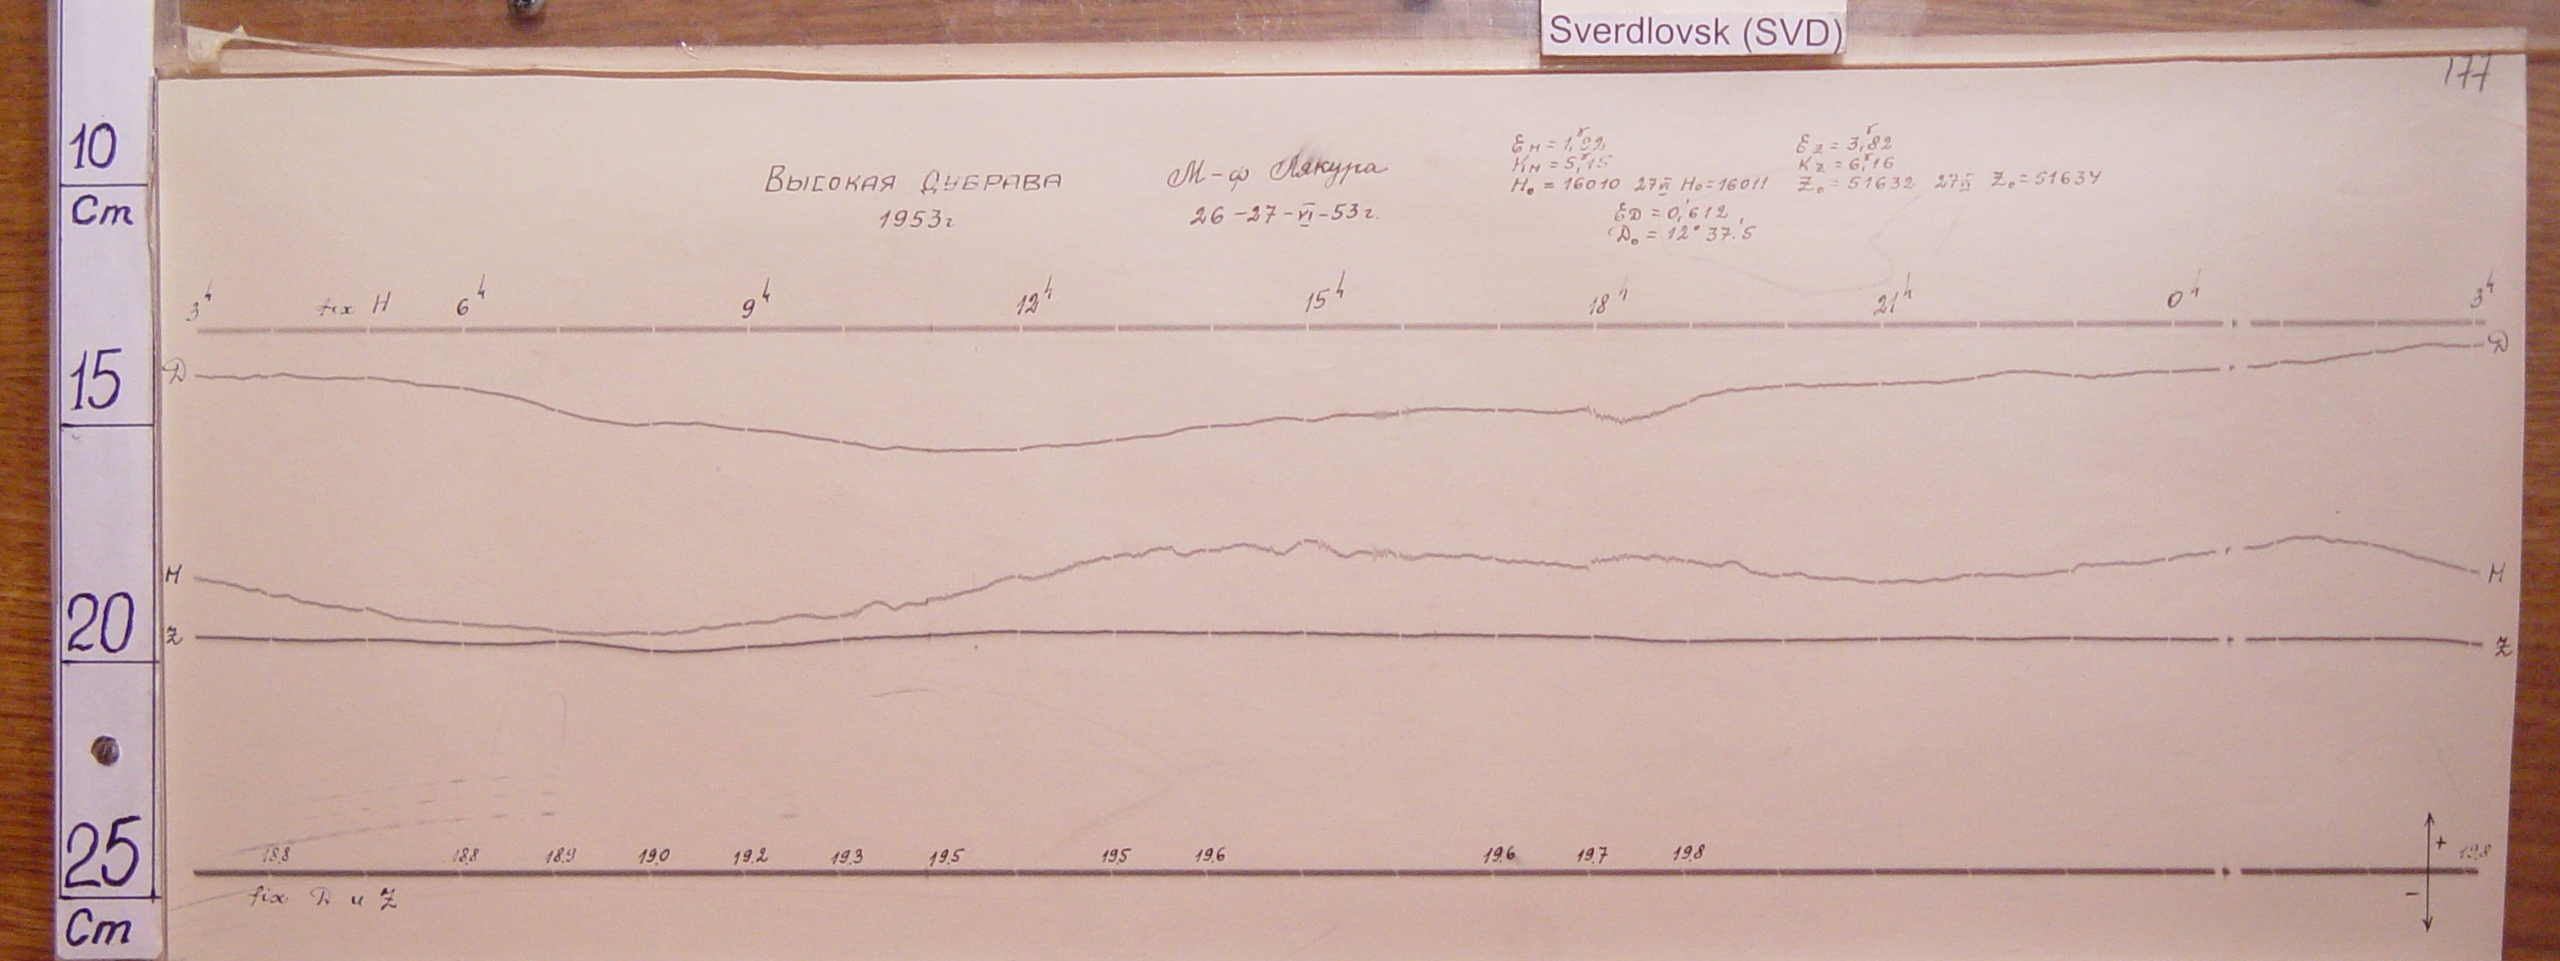 Sverdlovsk (SVD)
177
10
Cm
15
20
25
Cm
Высокая Дубрава
1953г
М-ф Лякура
26-27-VI-53г.
Ɛн = 1,ᵞ92
Кн = 5,ᵞ15
Н₀ = 16010 27VI Н₀=16011
Ɛz = 3,ᵞ82
Кz = 6,ᵞ16
Z₀ = 51632 27VI Z₀=51634
ƐD = 0,'612
D₀ = 12° 37.'5
3ʰ fix H 6ʰ 9ʰ 12ʰ 15ʰ 18ʰ 21ʰ 0ʰ 3ʰ
D D
H H
Z Z
18,8 18,8 18,9 19,0 19,2 19,3 19,5 19,5 19,6 19,6 19,7 19,8 19,8
+
−
fix D и Z